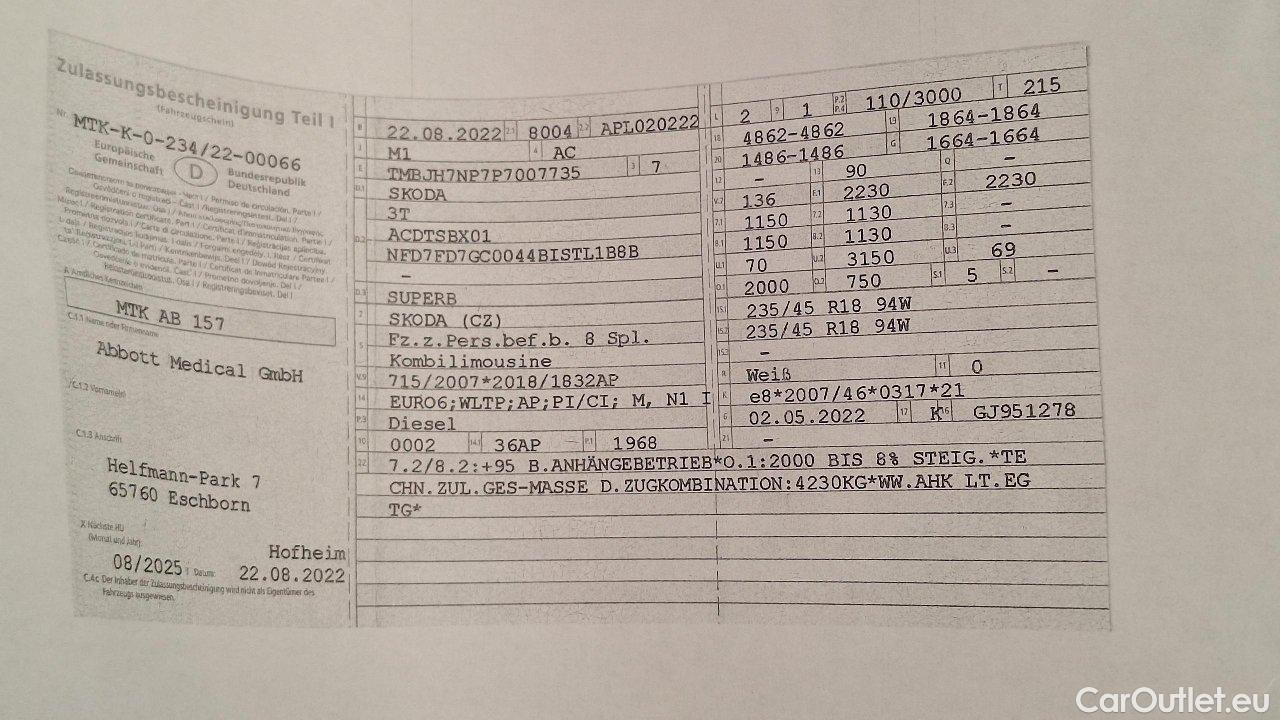 Zulassungsbescheinigung Teil I
(Fahrzeugschein)
Nr. MTK-K-0-234/22-00066
Europäische Gemeinschaft D Bundesrepublik Deutschland
A Amtliches Kennzeichen
MTK AB 157
C.1.1 Name oder Firmenname
Abbott Medical GmbH
C.1.2 Vorname(n)
C.1.3 Anschrift
Helfmann-Park 7
65760 Eschborn
X Nächste HU
(Monat und Jahr)
Hofheim
08/2025 Datum: 22.08.2022
C.4c Der Inhaber der Zulassungsbescheinigung wird nicht als Eigentümer des
Fahrzeugs ausgewiesen.
B 22.08.2022 2.1 8004 2.2 APL020222
J M1 4 AC
E TMBJH7NP7P7007735 3 7
D.1 SKODA
3T
D.2 ACDTSBX01
NFD7FD7GC0044BISTL1B8B
–
D.3 SUPERB
2 SKODA (CZ)
5 Fz.z.Pers.bef.b. 8 Spl.
Kombilimousine
V.9 715/2007*2018/1832AP
14 EURO6;WLTP;AP;PI/CI; M, N1 I
P.3 Diesel
10 0002 14.1 36AP P.1 1968
L 2 9 1 P.2 P.4 110/3000 T 215
18 4862-4862 19 1864-1864
20 1486-1486 G 1664-1664
12 – 13 90 Q –
V.7 136 F.1 2230 F.2 2230
7.1 1150 7.2 1130 7.3 –
8.1 1150 8.2 1130 8.3 –
U.1 70 U.2 3150 U.3 69
O.1 2000 O.2 750 S.1 5 S.2 –
15.1 235/45 R18 94W
15.2 235/45 R18 94W
15.3 –
R Weiß 11 0
K e8*2007/46*0317*21
6 02.05.2022 17 K 16 GJ951278
21 –
22 7.2/8.2:+95 B.ANHÄNGEBETRIEB*O.1:2000 BIS 8% STEIG.*TE
CHN.ZUL.GES-MASSE D.ZUGKOMBINATION:4230KG*WW.AHK LT.EG
TG*
CarOutlet.eu